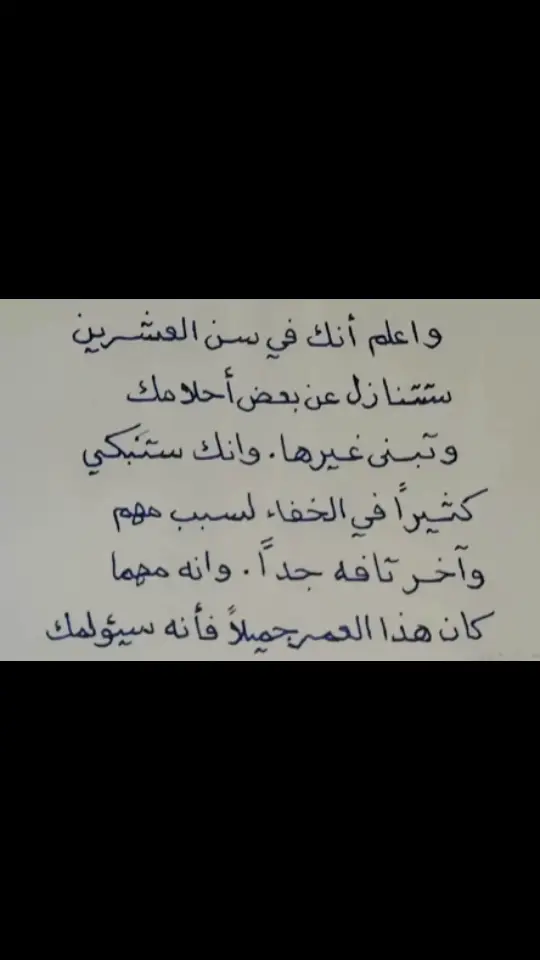 واعلم أنك في سن العشرين
ستتنازل عن بعض أحلامك
وتبنى غيرها. وانك ستَبكي
كثيراً في الخفاء لسبب مهم
وآخر تافه جداً. وانه مهما
كان هذا العمر جميلاً فأنه سيؤلمك